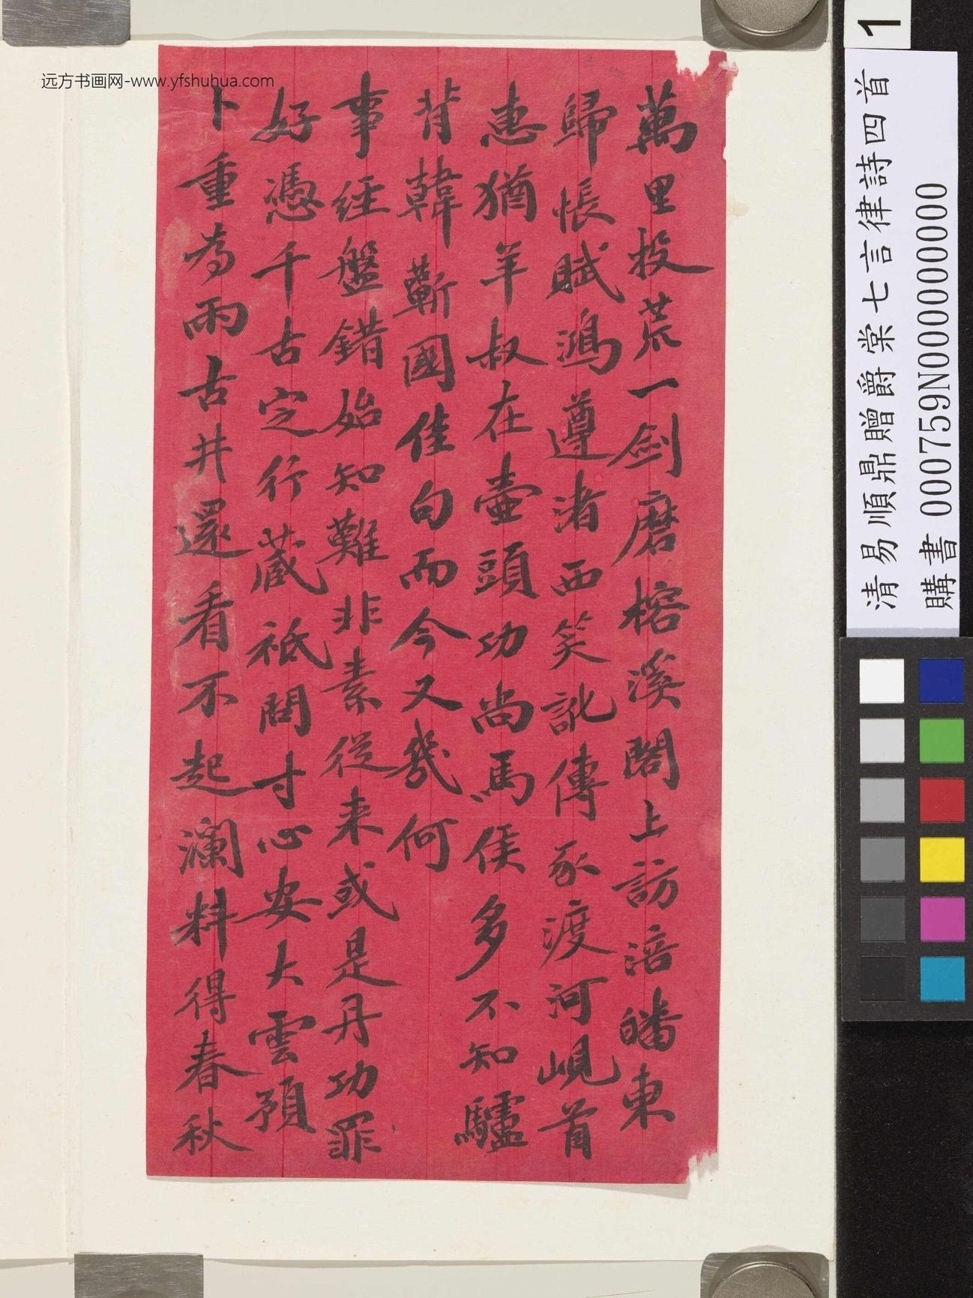 萬里投荒一劍磨榕溪閣上訪涪皤東
歸悵賦鴻遵渚西笑訛傳豕渡河峴首
惠猶羊叔在壺頭功尚馬侯多不知驢
背韓蘄國佳句而今又幾何
事經盤錯始知難非素從来或是丹功罪
好憑千古定行藏祗問寸心安大雲預
卜重為雨古井還看不起瀾料得春秋
远方书画网-www.yfshuhua.com
1
清易順鼎贈爵棠七言律詩四首
購書 000759N000000000